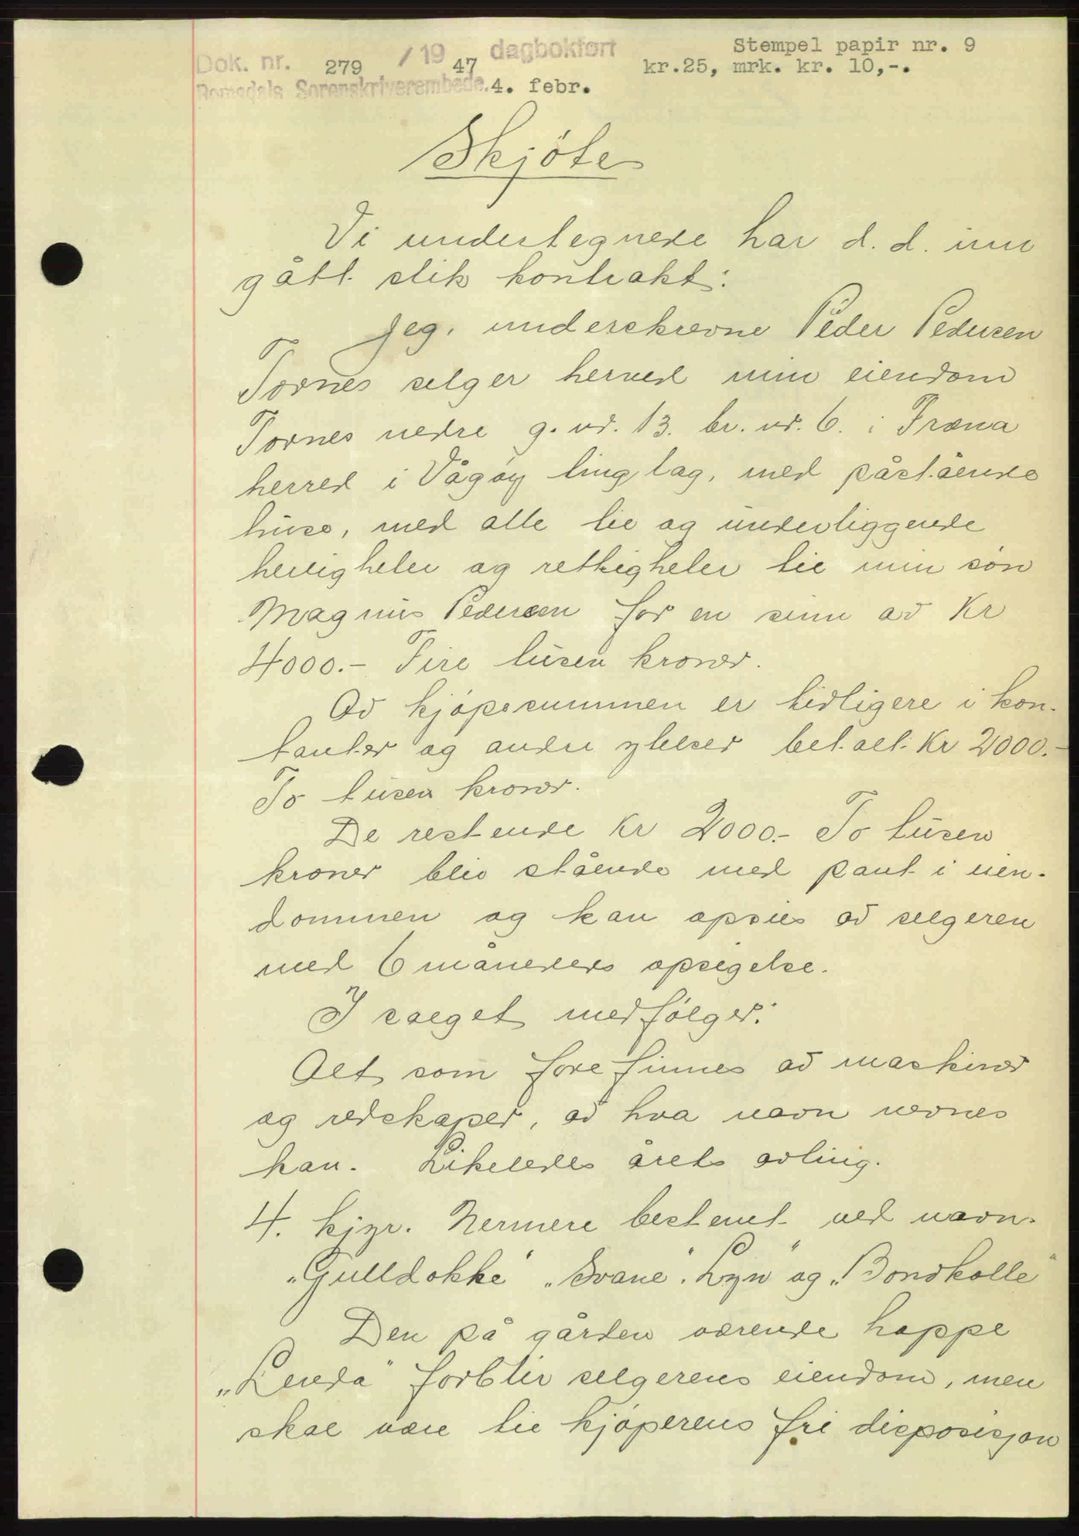 Dok. nr. 279 / 19 47 dagbokført
Stempel papir nr. 9
kr.25, mrk. kr. 10,-.
Romsdals Sorenskriverembede. 4. febr.
Skjöte
Vi undertegnede har d. d. inn
gått slik kontrakt:
Jeg, underskrevne Peder Pedersen
Tornes selger herved min eiendom
Tornes nedre g. nr. 13. br. nr. 6. i Fræna
herred i Vågöy tinglag, med påstående
huse, med alle til og underliggende
herligheter og rettigheter til min sön
Magnus Pedersen for en sum av Kr
4000.- Fire tusen kroner.
Av kjöpesummen er tidligere i kon-
tanter og andre ytelser betalt Kr 2000.-
To tusen kroner.
De restende Kr 2000.- To tusen
kroner blir stående med pant i eien-
dommen og kan opsies av selgeren
med 6 måneders opsigelse.
I salget medfölger:
Alt som forefinnes av maskiner
og redskaper, av hva navn nevnes
kan. Likeledes årets avling.
4. kjyr. Nermere bestemt ved navn.
„Gulldokke" „Svane". Lyn" og „Bondkolle"
Den på gården værende hoppe
„Lenda" forblir selgerens eiendom, men
skal være til kjöperens fri disposisjon